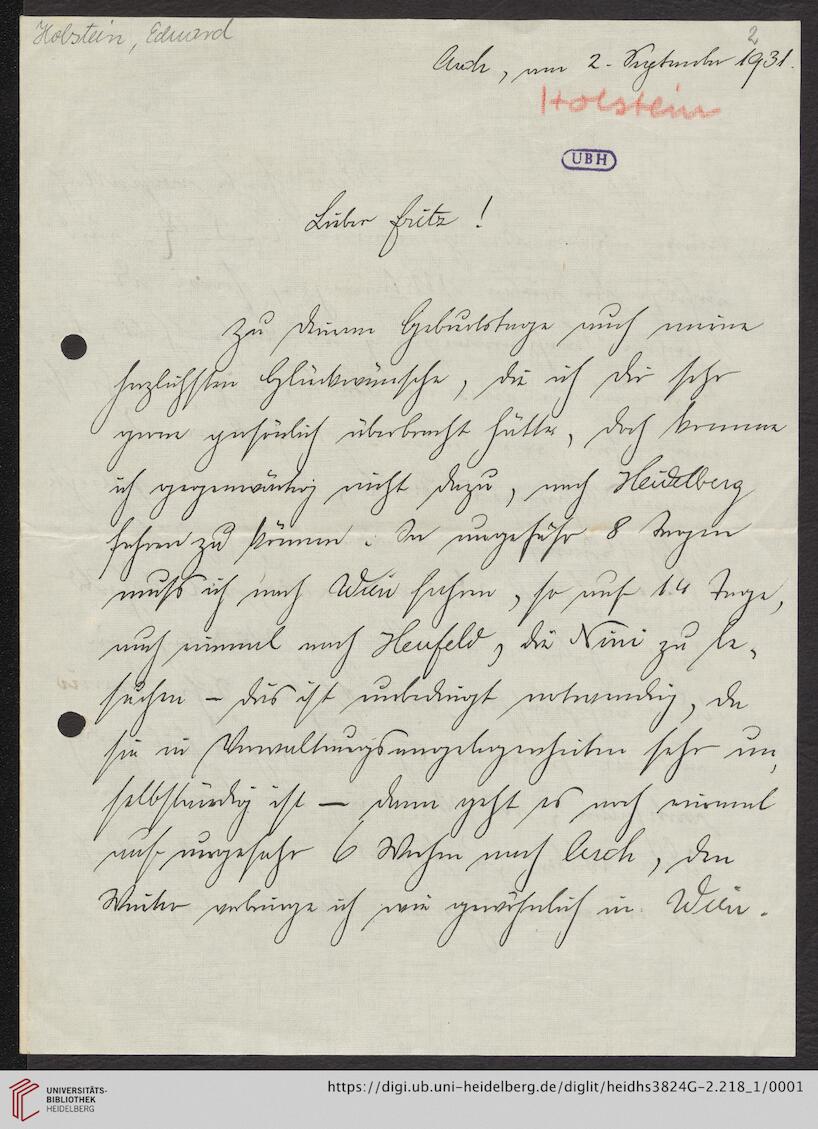 Holstein, Eduard
2
Asch, am 2. September 1931.
Holstein
UBH
Lieber Fritz!
Zu deinem Geburtstage auch meine
herzlichsten Glückwünsche, die ich dir sehr
gerne persönlich überbracht hätte, doch komme
ich gegenwärtig nicht dazu, nach Heidelberg
fahren zu können. In ungefähr 8 Tagen
muss ich nach Wien fahren, so auf 14 Tage,
auch einmal nach Heufeld, die Nini zu be-
suchen – das ist unbedingt notwendig, da
sie in Verwaltungsangelegenheiten sehr un-
selbständig ist – dann geht es noch einmal
auf ungefähr 6 Wochen nach Asch, den
Winter verbringe ich wie gewöhnlich in Wien.
UNIVERSITÄTS-
BIBLIOTHEK
HEIDELBERG
https://digi.ub.uni-heidelberg.de/diglit/heidhs3824G-2.218_1/0001